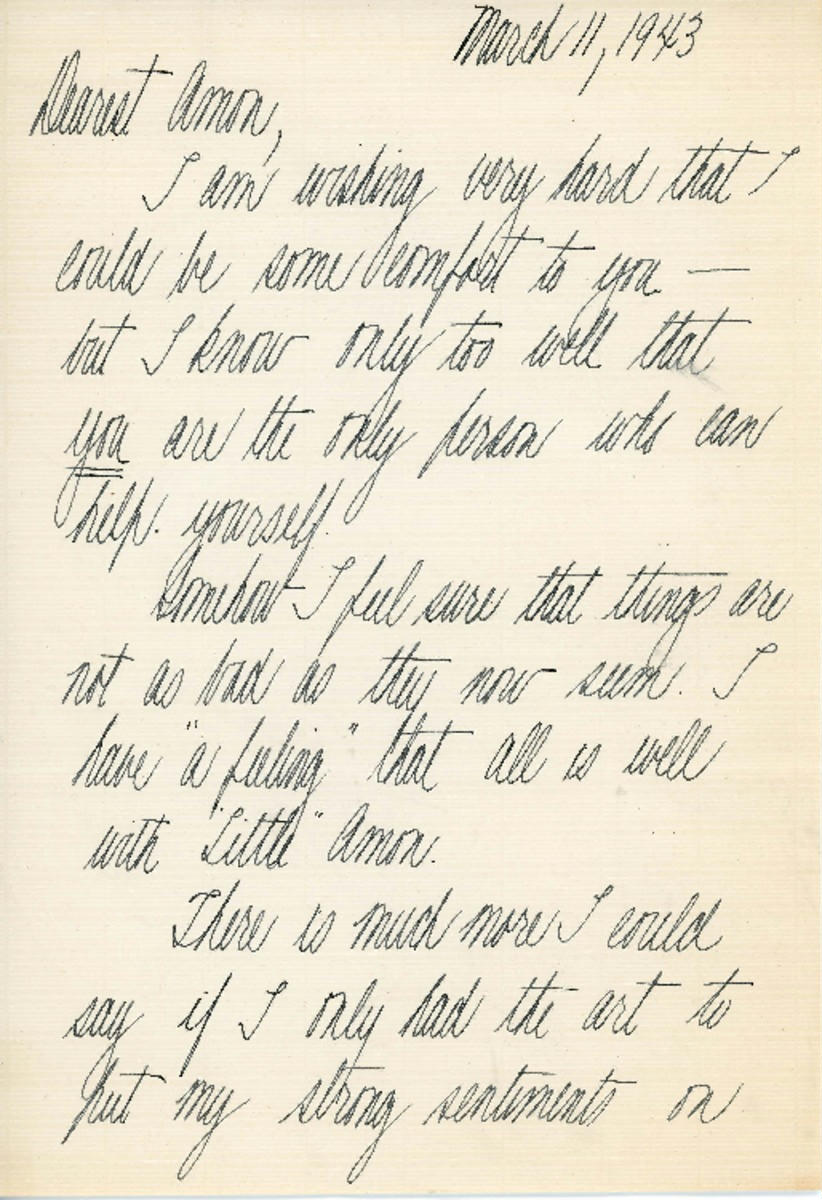 March 11, 1943
Dearest Amon,
I am wishing very hard that I
could be some comfort to you —
but I know only too well that
you are the only person who can
help yourself.
Somehow I feel sure that things are
not as bad as they now seem. I
have "a feeling" that all is well
with "Little" Amon.
There is much more I could
say if I only had the art to
put my strong sentiments on